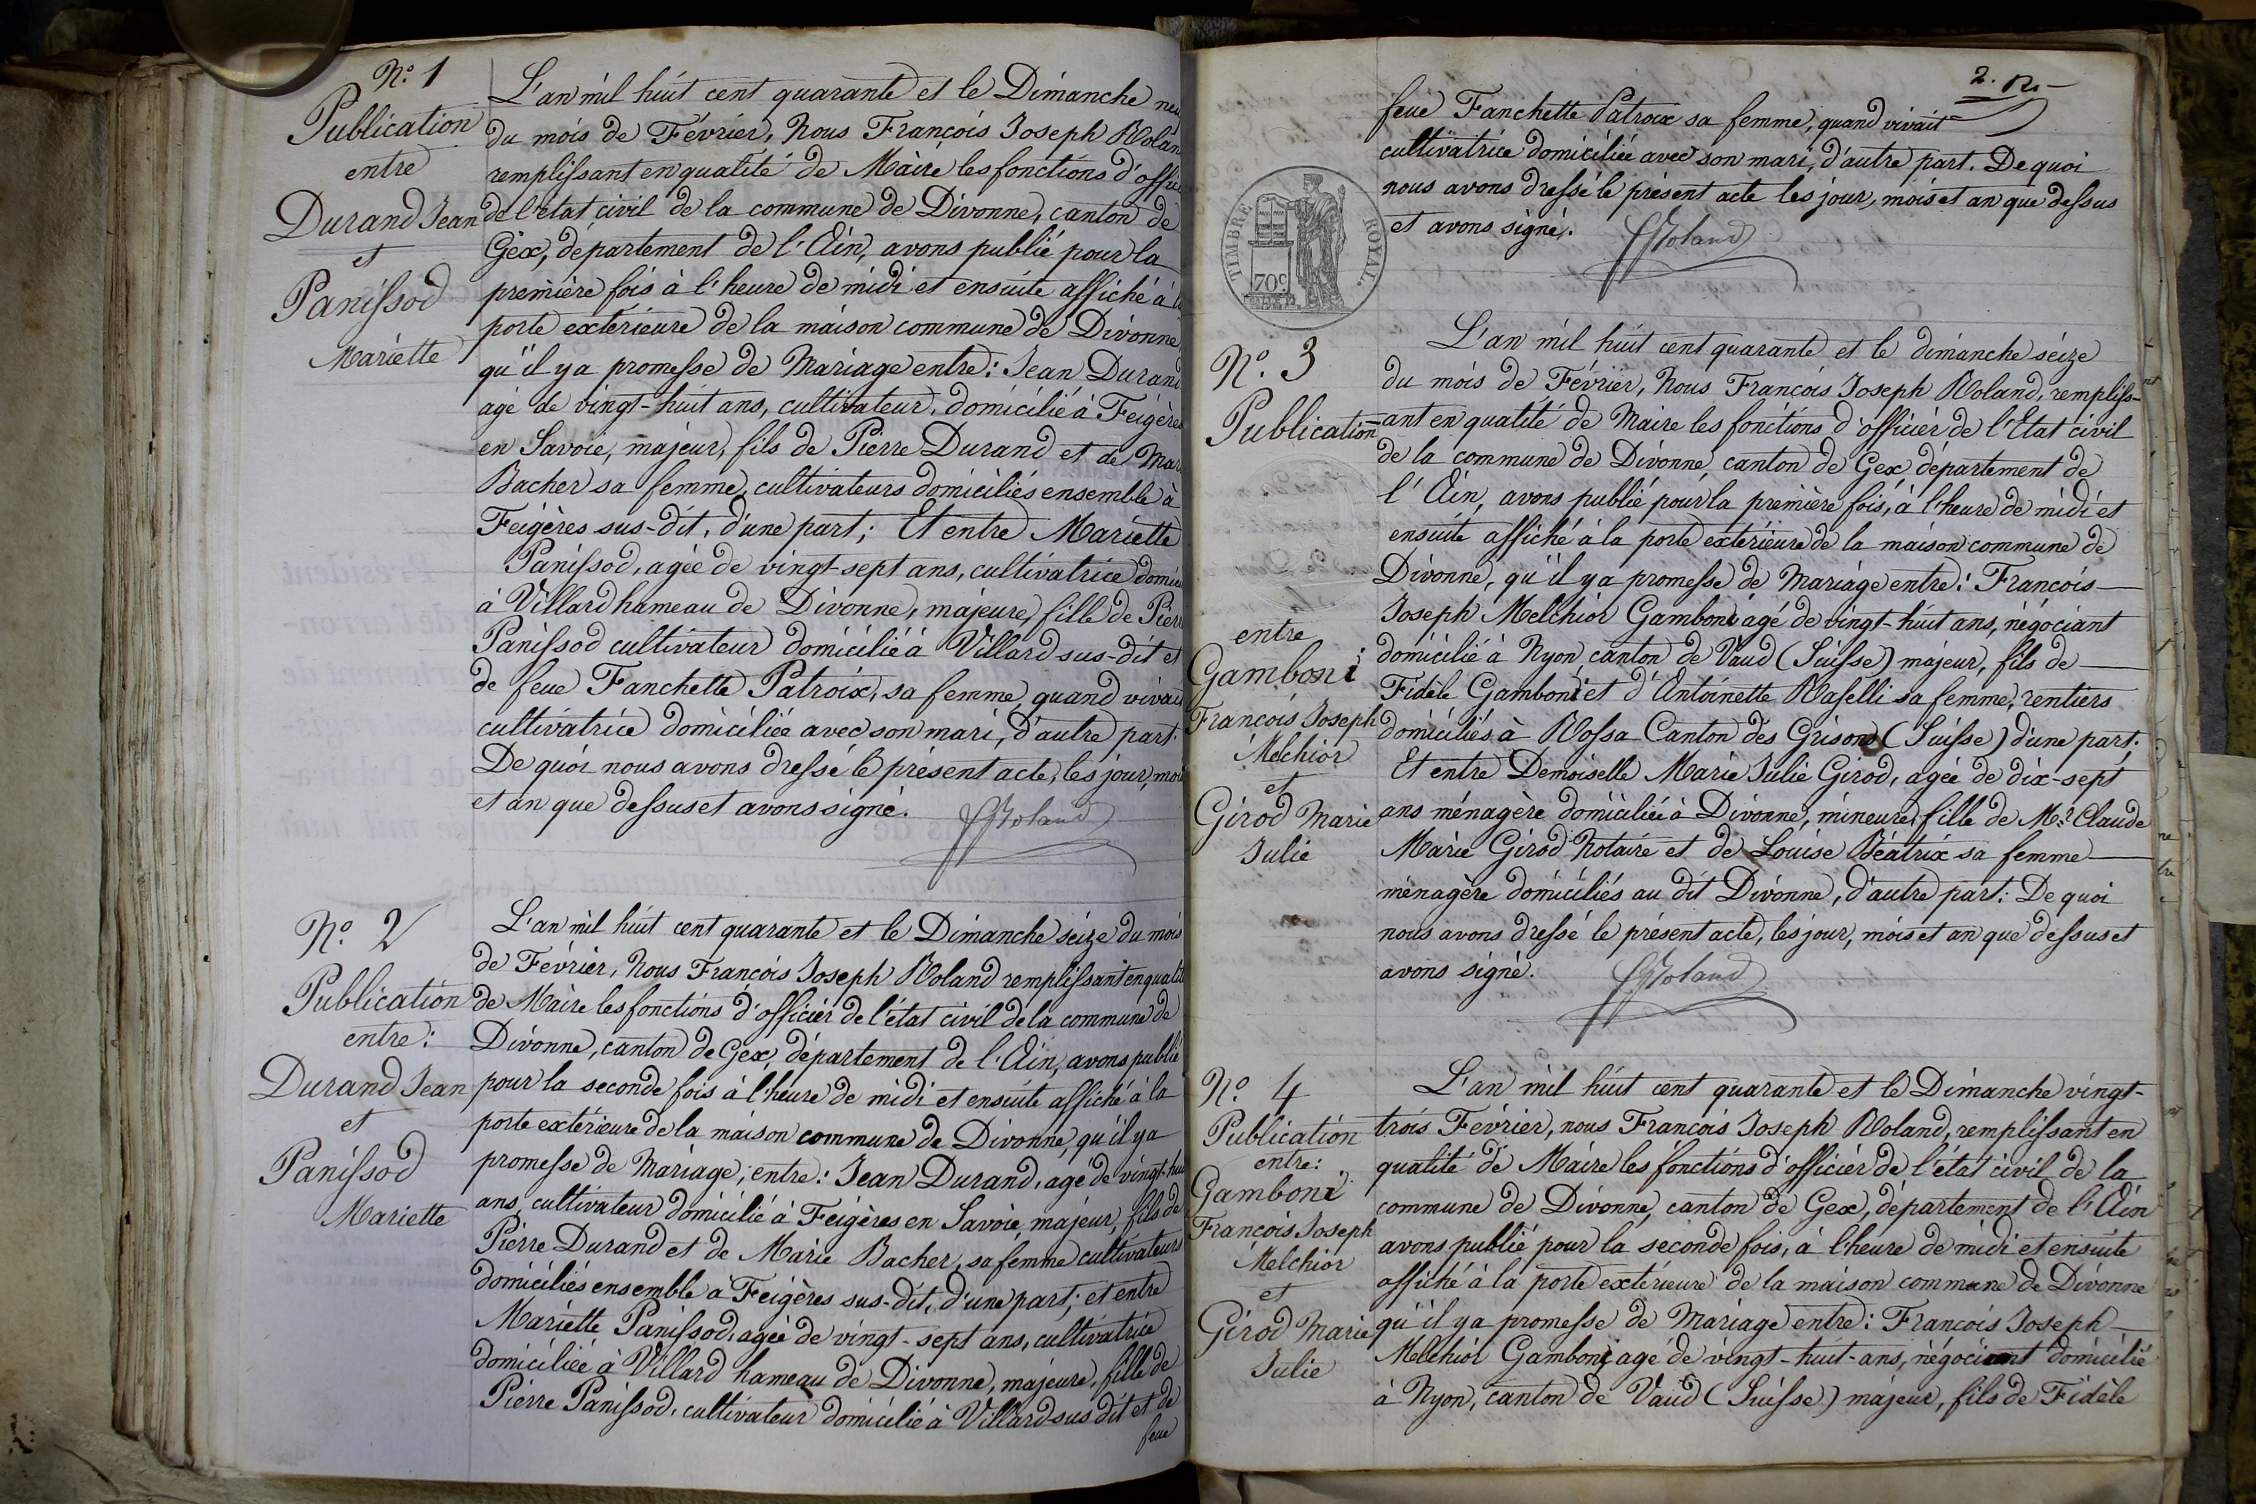 N.º 1
Publication
entre
Durand Jean
et
Panissod
Mariette
L'an mil huit cent quarante et le Dimanche neu
du mois de Février, Nous François Joseph Rolan
remplissant en qualité de Maire les fonctions d'offic
de l'état civil de la commune de Divonne, canton de
Gex, département de l'Ain, avons publié pour la
première fois à l'heure de midi et ensuite affiché à l
porte extérieure de la maison commune de Divonne,
qu'il y a promesse de Mariage entre: Jean Durand
agé de vingt-huit ans, cultivateur, domicilié à Feigères
en Savoie, majeur, fils de Pierre Durand et de Mar
Bacher sa femme, cultivateurs domiciliés ensemble à
Feigères sus-dit, d'une part; Et entre Mariette
Panissod, agée de vingt-sept ans, cultivatrice domici
à Villard hameau de Divonne, majeure, fille de Pierr
Panissod cultivateur domicilié à Villard sus-dit et
de feue Fanchette Patroix, sa femme, quand vivait
cultivatrice domiciliée avec son mari, d'autre part.
De quoi nous avons dressé le présent acte, les jour, moi
et an que dessus et avons signé.
Roland
N.º 2
Publication
entre:
Durand Jean
et
Panissod
Mariette
L'an mil huit cent quarante et le Dimanche seize du mois
de Février, Nous François Joseph Roland remplissant en qualité
de Maire les fonctions d'officier de l'état civil de la commune de
Divonne, canton de Gex, département de l'Ain, avons publié
pour la seconde fois à l'heure de midi et ensuite affiché à la
porte extérieure de la maison commune de Divonne, qu'il y a
promesse de Mariage, entre: Jean Durand, agé de vingt-hui
ans, cultivateur domicilié à Feigères en Savoie, majeur, fils de
Pierre Durand et de Marie Bacher, sa femme cultivateurs
domiciliés ensemble à Feigères sus-dit, d'une part; et entre
Mariette Panissod, agée de vingt-sept ans, cultivatrice
domiciliée à Villard hameau de Divonne, majeure, fille de
Pierre Panissod, cultivateur domicilié à Villard sus dit et de
feue
2.
feue Fanchette Patroix sa femme, quand vivait
cultivatrice domiciliée avec son mari, d'autre part. De quoi
nous avons dressé le présent acte les jour, mois et an que dessus
et avons signé.
Roland
TIMBRE ROYAL.
70c
N.º 3
Publication
entre
Gamboni
François Joseph
Melchior
et
Girod Marie
Julie
L'an mil huit cent quarante et le dimanche seize
du mois de Février, Nous François Joseph Roland, rempliss-
ant en qualité de Maire les fonctions d'officier de l'Etat civil
de la commune de Divonne canton de Gex, département de
l'Ain, avons publié pour la première fois, à l'heure de midi et
ensuite affiché à la porte extérieure de la maison commune de
Divonne, qu'il y a promesse de Mariage entre: François
Joseph Melchior Gamboni agé de vingt-huit ans, négociant
domicilié à Nyon canton de Vaud (Suisse) majeur, fils de
Fidèle Gamboni et d'Antoinette Raselli sa femme, rentiers
domiciliés à Rossa Canton des Grisons (Suisse) d'une part;
Et entre Demoiselle Marie Julie Girod, agée de dix-sept
ans ménagère domiciliée à Divonne, mineure, fille de Mr Claude
Marie Girod Notaire et de Louise Béatrix sa femme
ménagère domiciliés au dit Divonne, d'autre part: De quoi
nous avons dressé le présent acte, les jour, mois et an que dessus et
avons signé.
Roland
N.º 4
Publication
entre:
Gamboni
François Joseph
Melchior
et
Girod Marie
Julie
L'an mil huit cent quarante et le Dimanche vingt-
trois Février, nous François Joseph Roland, remplissant en
qualité de Maire les fonctions d'officier de l'état civil de la
commune de Divonne, canton de Gex, département de l'Ain
avons publié pour la seconde fois, à l'heure de midi et ensuite
affiché à la porte extérieure de la maison commune de Divonne
qu'il y a promesse de Mariage entre: François Joseph
Melchior Gamboni agé de vingt-huit-ans, négociant domicilié
à Nyon, canton de Vaud (Suisse) majeur, fils de Fidèle